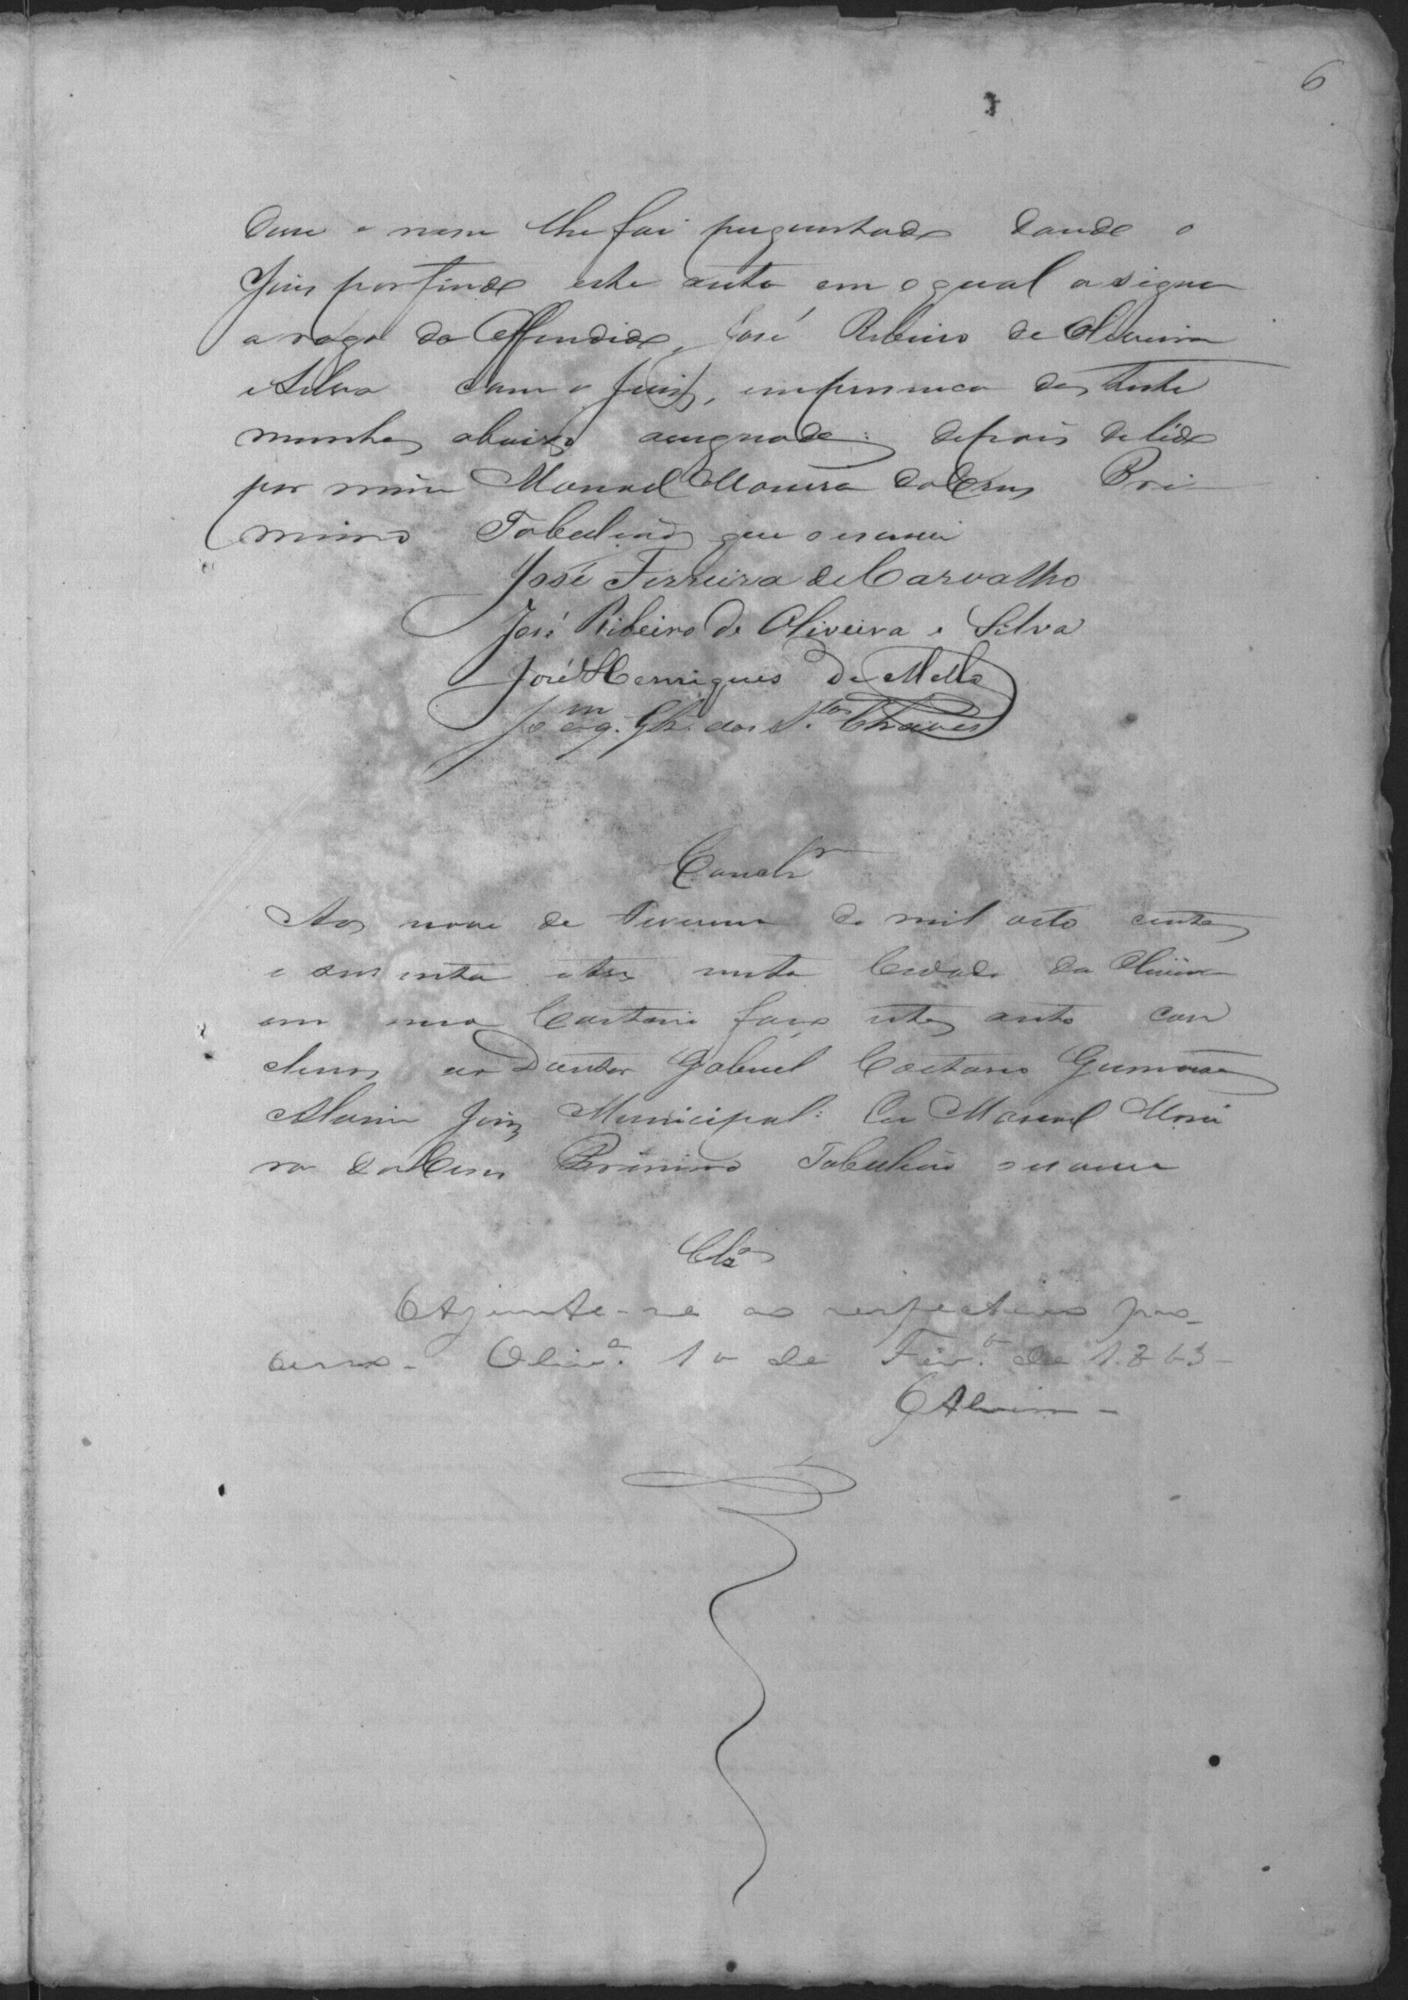 6
disse e nem lhe foi perguntado dando o
Juis por findo este auto em o qual asigna
a rogo do Offendido, José Ribeiro de Oliveira
e Silva com o Juis, em presenca das teste
munhas abaixo asignadas: depois de lido
por mim Manoel Moreira da Crus Pri
mimo Tabelião que o escrevi
José Ferreira de Carvalho
José Ribeiro de Oliveira e Silva
José Henriques de Mello
dos S.tos Chaves
Conclm
Aos nove de Fevereiro de mil oito centos
e sessenta e tres nesta Cidade da Oliveira
em meo Cartorio faço estes autos con
clusos ao Doutor Gabriel Caetano Guimarães
Alvim Juiz Municipal: Eu Manoel Morei
ra da Crus Primimo Tabelião o escrevi
Clsos
Ajunte-se ao respectivo pro-
cesso. Olivra. 10 de Fevo. de 1863
Alvim